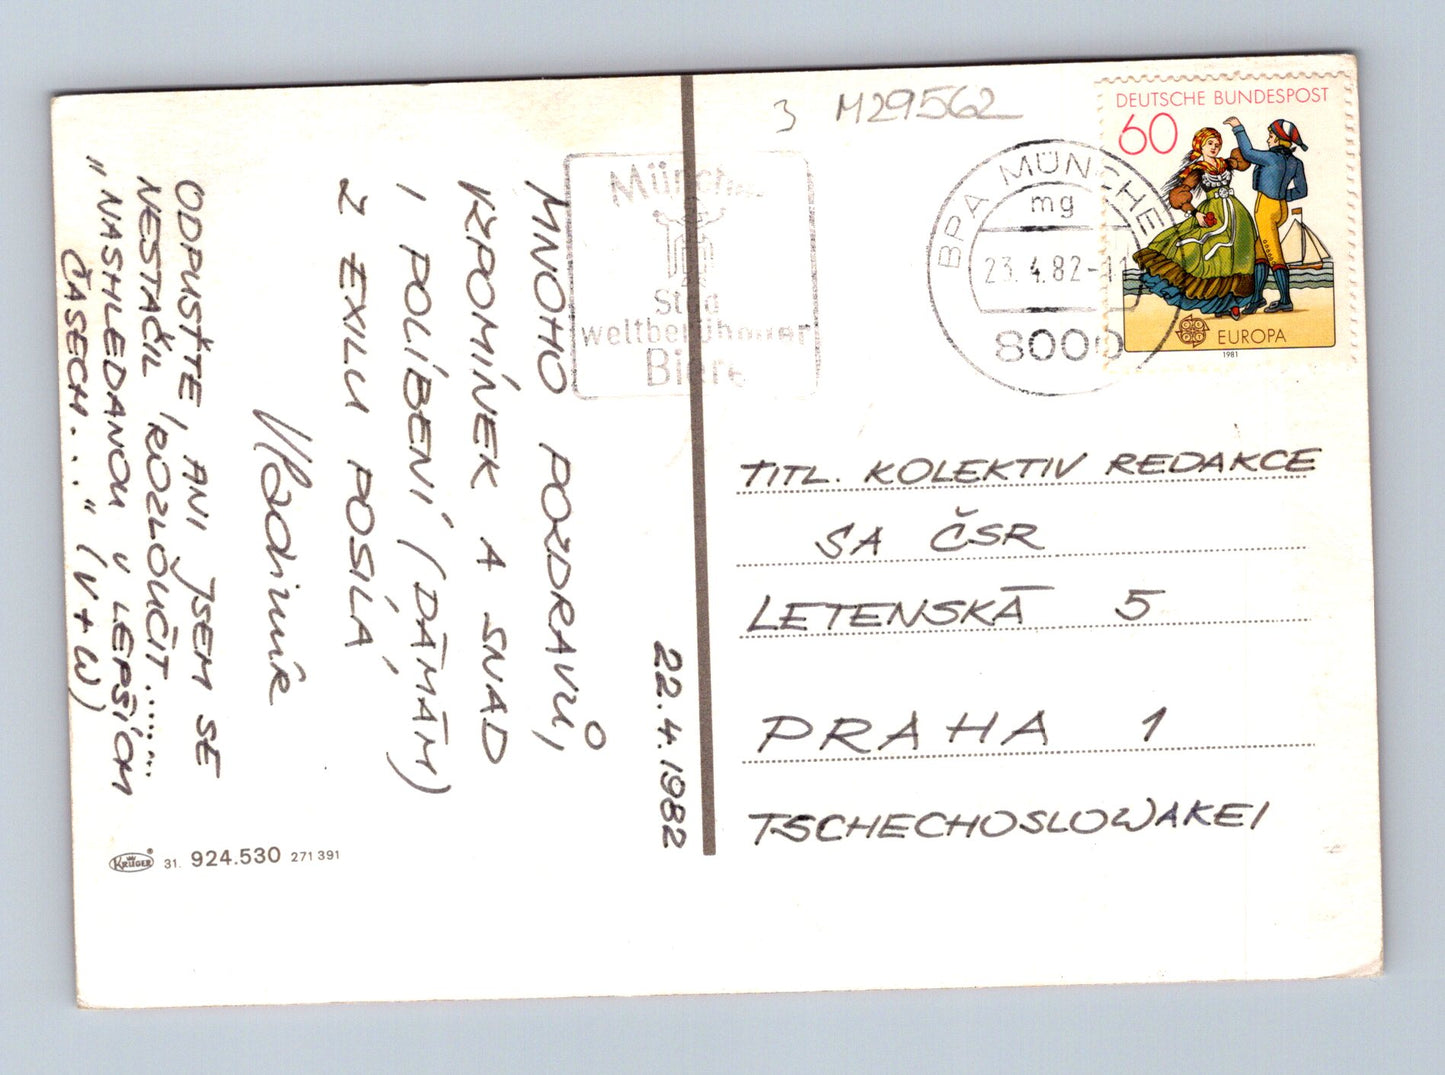 3 M29562
DEUTSCHE BUNDESPOST
60
EUROPA
1981
BPA MÜNCHE
mg
23.4.82-11
8000
München
Stadt
weltberühmter
Biere
22.4.1982
MNOHO POZDRAVŮ,
VZPOMÍNEK A SNAD
I POLÍBENÍ (DÁMÁM)
Z EXILU POSÍLÁ,
Vladimír
ODPUSŤTE, ANI JSEM SE
NESTAČIL ROZLOUČIT........
"NASHLEDANOU V LEPŠÍCH
ČASECH...." (V+W)
TITL. KOLEKTIV REDAKCE
SA ČSR
LETENSKÁ 5
PRAHA 1
TSCHECHOSLOWAKEI
KRÜGER 31. 924.530 271 391